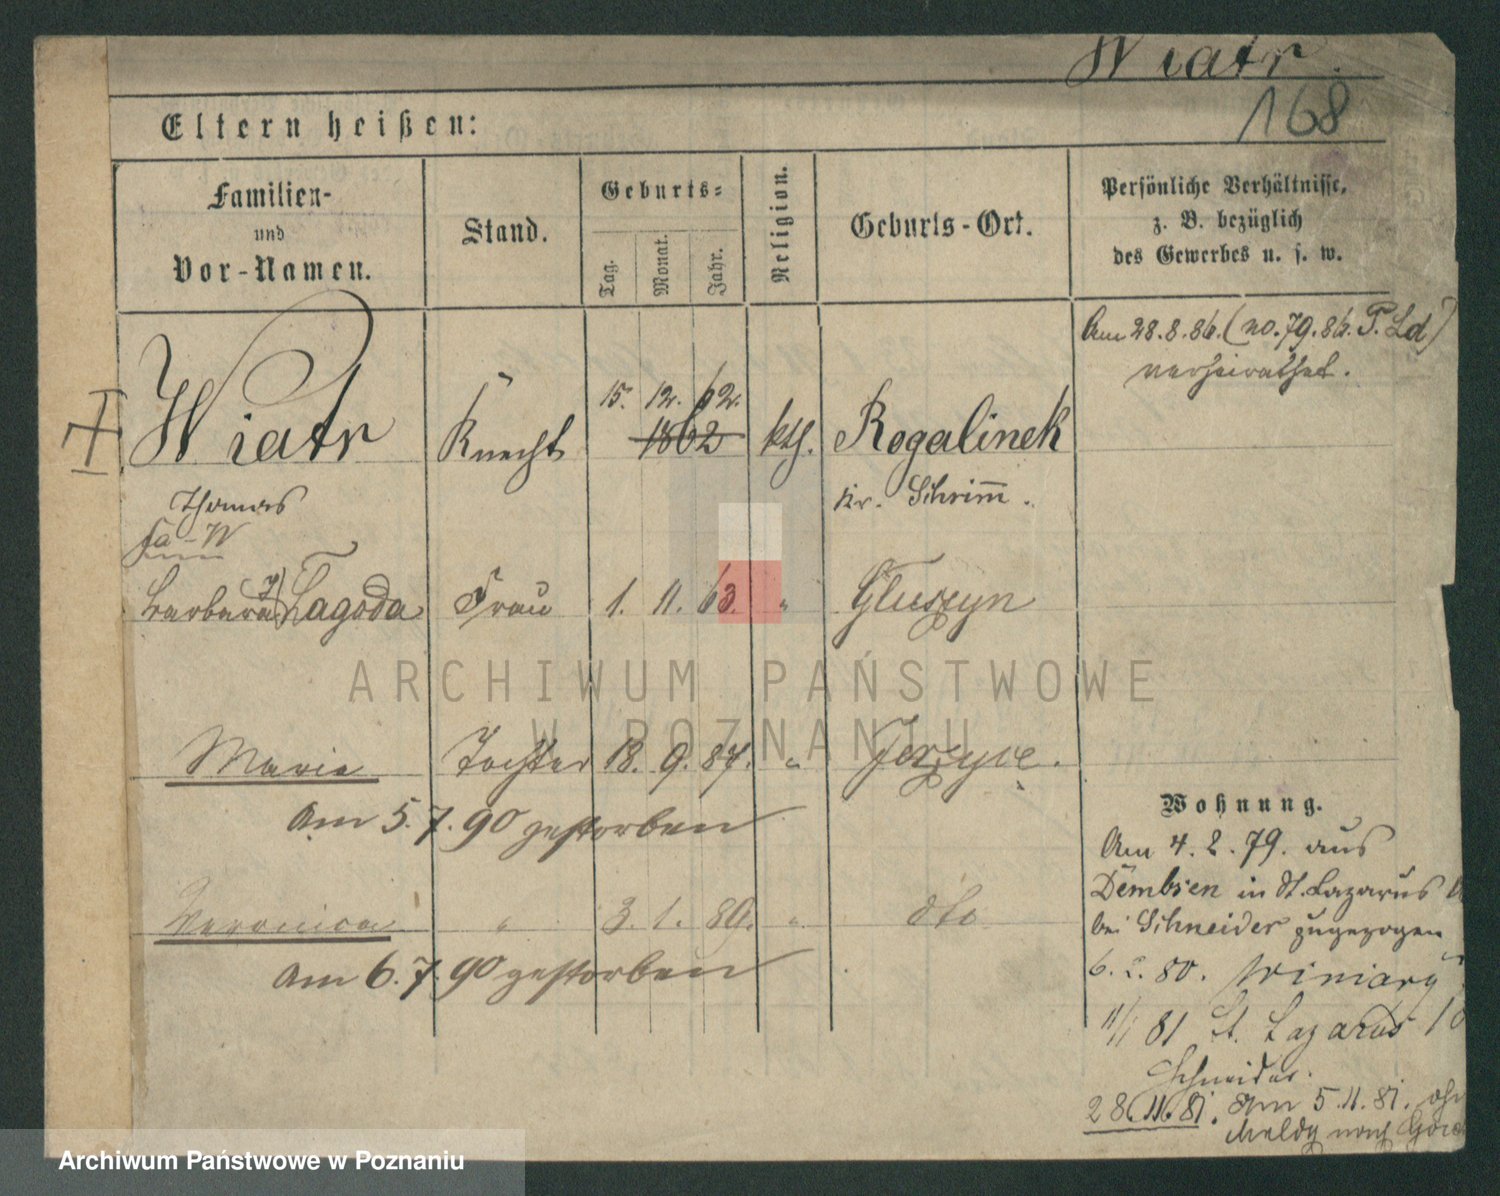 Wiatr.
168
Eltern heißen:
Familien-
und
Vor-Namen.
Stand.
Geburts-
Tag.
Monat.
Jahr.
Religion.
Geburts-Ort.
Persönliche Verhältnisse,
z. B. bezüglich
des Gewerbes u. s. w.
Am 28.8.86. (no. 79.86. P. Ld)
verheirathet.
15. 12. 62.
Wiatr Knecht 1862 kth. Rogalinek
Thomas Kr. Schrimm.
Barbara Łagoda Frau 1. 11. 63. " Głuszyn
Marie Tochter 18. 9. 87. " Jerzyce.
Am 5.7.90 gestorben
Veronica " 3. 1. 89. " dto
Am 6.7.90 gestorben
Wohnung.
Am 4.2.79. aus
Dembsen in St. Lazarus
bei Schneider zugezogen
6.2.80. Winiary
11/1 81 St. Lazarus 10
Schneider.
28.11.81. Am 5.11.81.
nach
ARCHIWUM PAŃSTWOWE
W POZNANIU
Archiwum Państwowe w Poznaniu